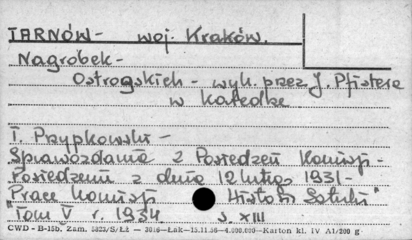 TARNÓW - woj. Kraków.
Nagrobek -
Ostrogskich - wyk. przez J. Pfistera
w Katedrze
T. Przypkowski -
Sprawozdania z Posiedzeń Komisji -
Posiedzenie z dnia 12 lutego 1931 -
Prace Komisji Historii Sztuki"
"Tom V r. 1934 s. XIII
CWD - B-15b. Zam. 5823/S/Łt — 3016—Łak—15.11.56—4.000.000—Karton kl. IV A1/200 g.